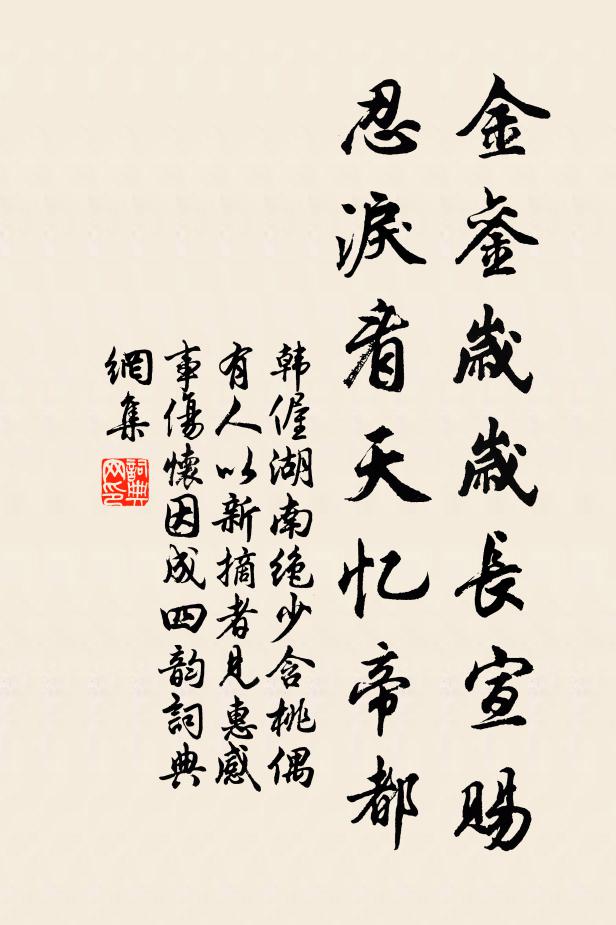 金銮歲歲長宣賜
忍淚看天忆帝都
韩偓湖南绝少含桃偶
有人以新摘者見惠感
事傷懷因成四韵詞典
網集
詞典网印